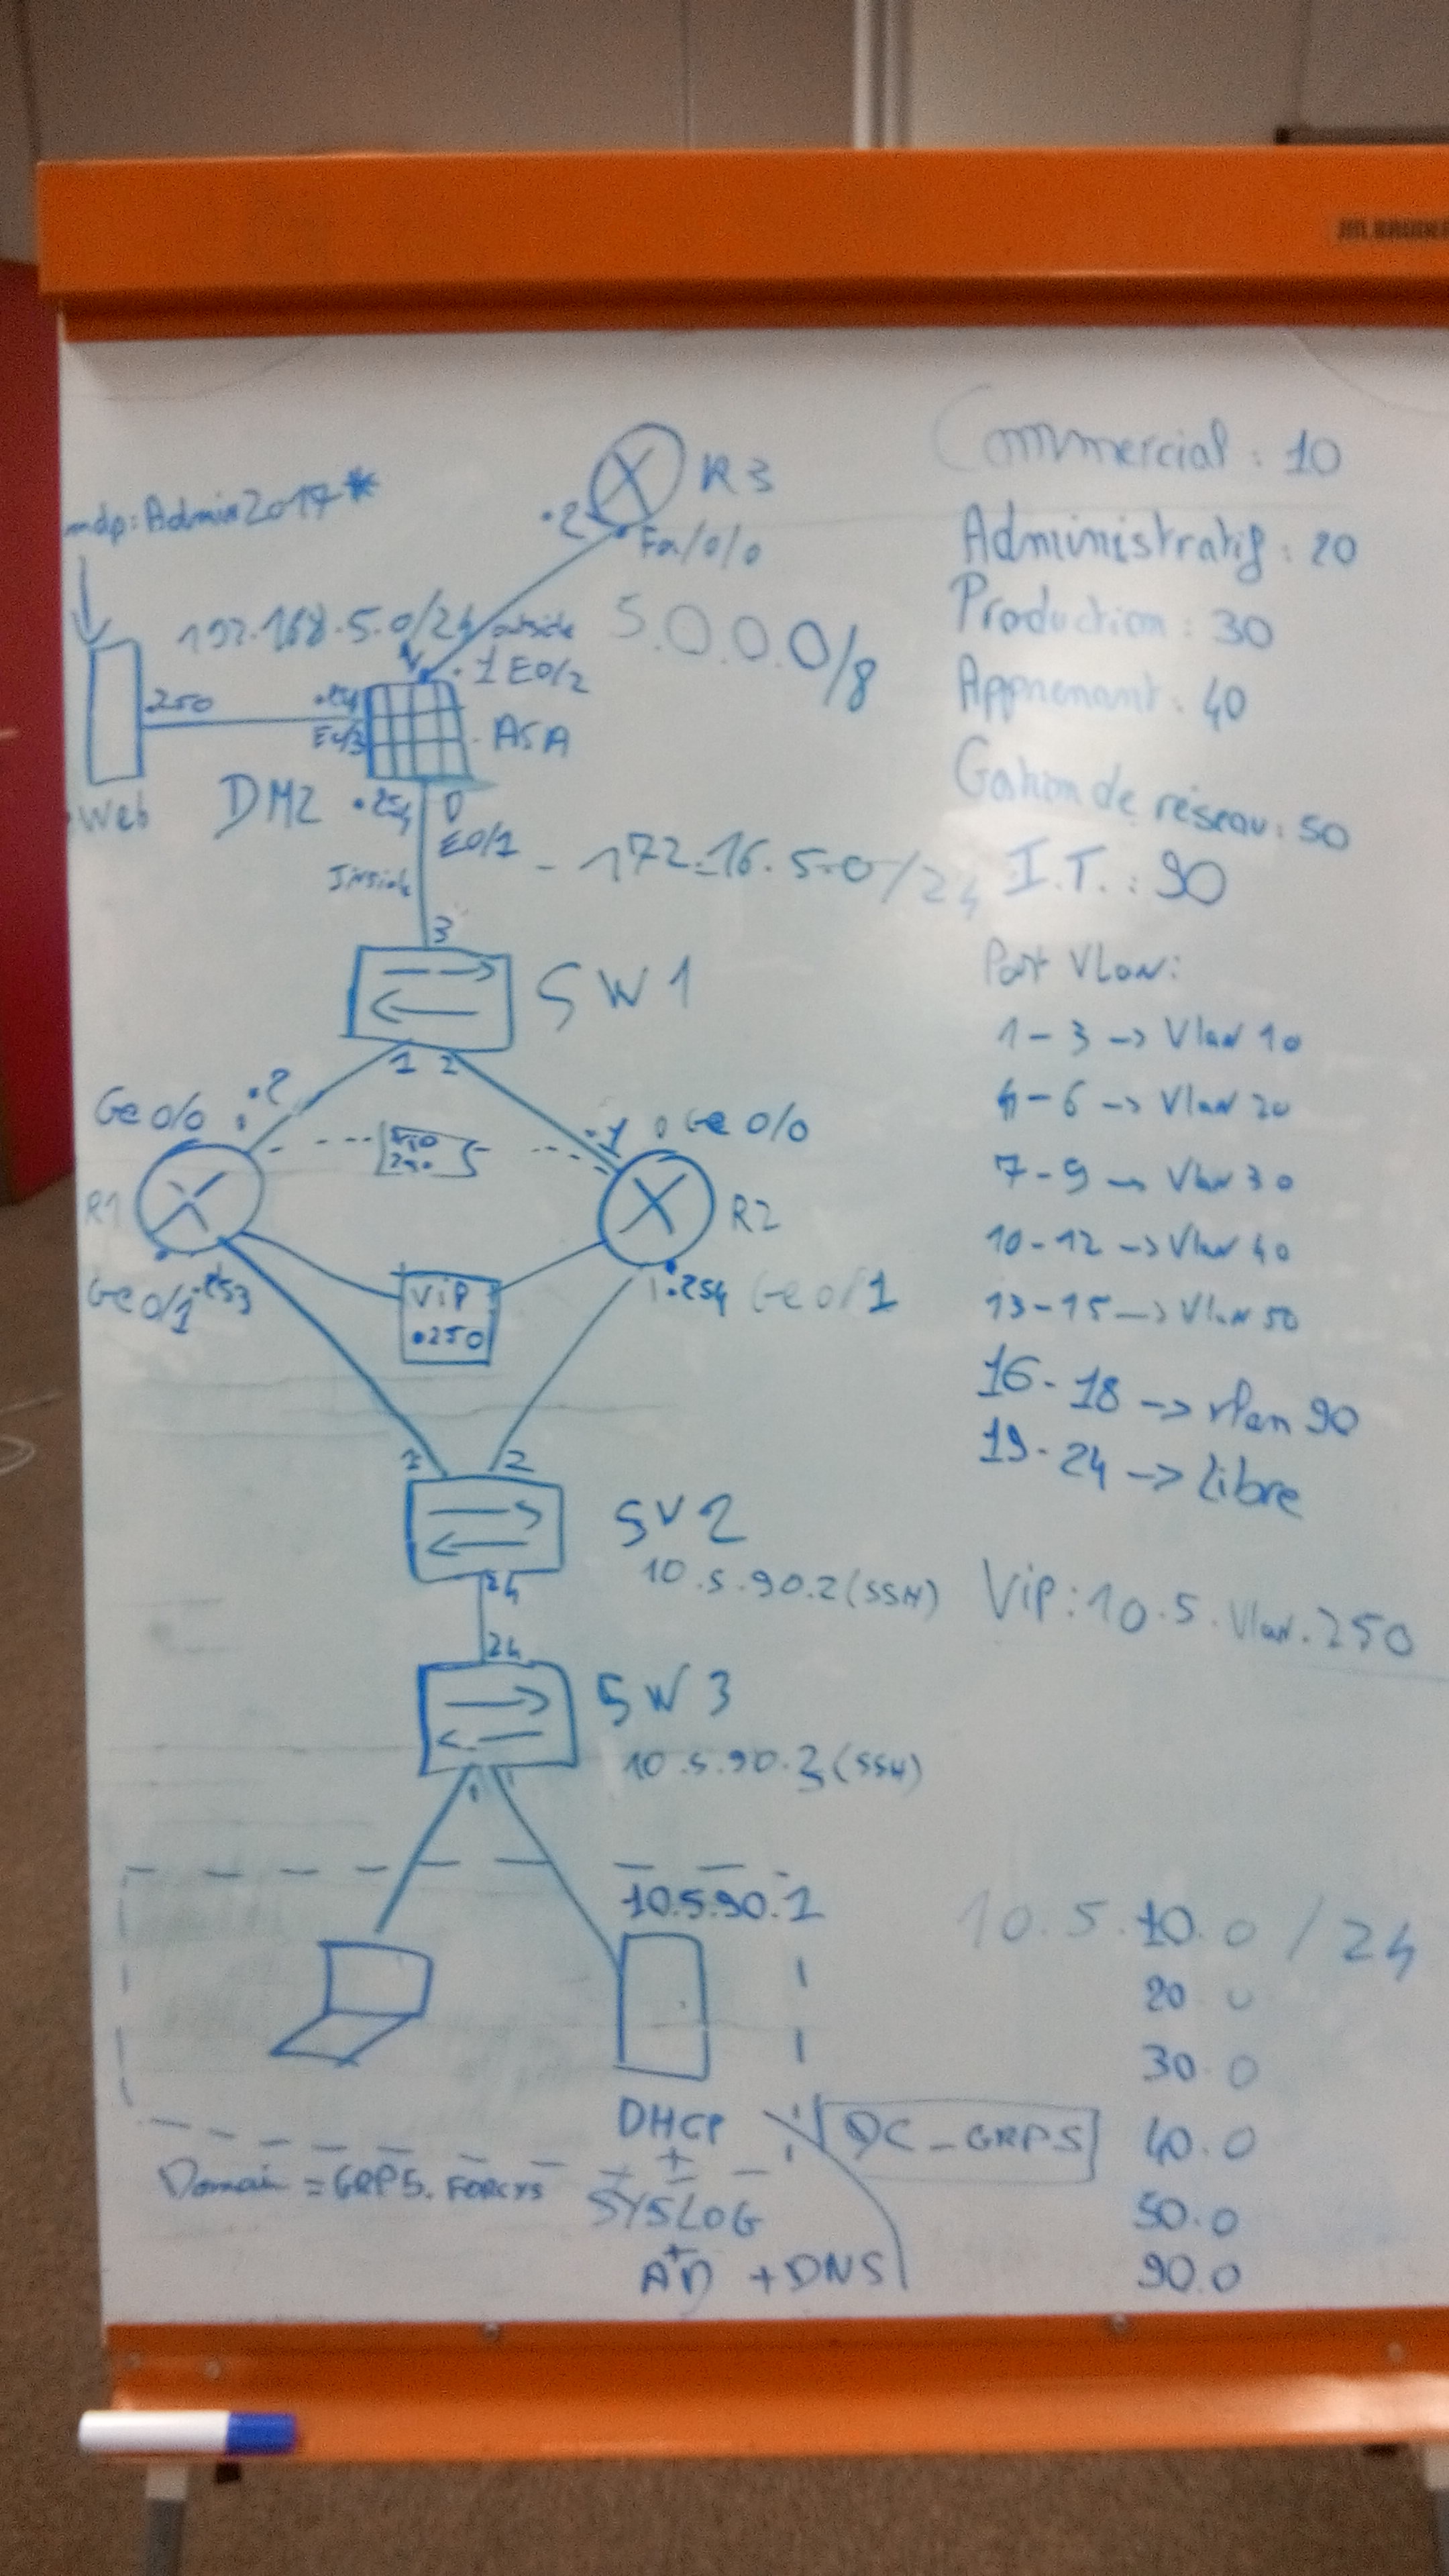 R3
.2
Fa/0/0
mdp: Admin2017*
192.168.5.0/24
outside
5.0.0.0/8
.1 E0/2
.250
.254
E0/3
ASA
Web
DMZ
.254
0
E0/1
Inside
- 172.16.5.0/24
3
SW1
1 2
Ge 0/0
.2
.1
Ge 0/0
R1
R2
Ge 0/1 .253
ViP
.250
.254 Ge 0/1
1 2
SW2
10.5.90.2 (SSH)
24
24
SW3
10.5.90.3 (SSH)
10.5.90.1
DHCP
+
SYSLOG
+
AD + DNS
DC_GRP5
Domain = GRP5.
Commercial : 10
Administratif : 20
Production : 30
Apprenant : 40
Gestion de réseau : 50
I.T. : 90
Port Vlan :
1-3 -> Vlan 10
4-6 -> Vlan 20
7-9 -> Vlan 30
10-12 -> Vlan 40
13-15 -> Vlan 50
16-18 -> vlan 90
19-24 -> Libre
ViP : 10.5.Vlan.250
10.5.10.0/24
20.0
30.0
40.0
50.0
90.0